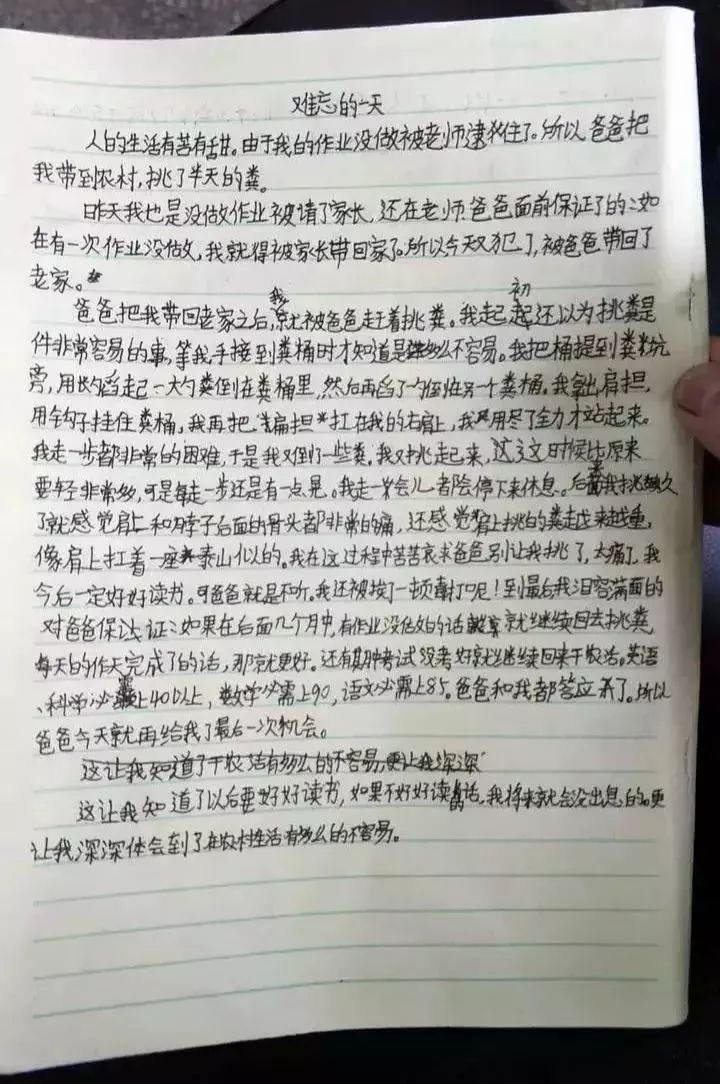 难忘的一天
人的生活有苦有甜。由于我的作业没做被老师逮犼住了。所以爸爸把
我带到农村,挑了半天的粪。
昨天我也是没做作业被请了家长,还在老师爸爸面前保证了的:如
在有一次作业没做,我就得被家长带回家了。所以今天又犯了,被爸爸带回了
老家。
爸爸把我带回老家之后,我就被爸爸赶着挑粪。我起初还以为挑粪是
件非常容易的事,等我手接到粪桶时才知道是多么不容易。我把桶提到粪坑
旁,用勺舀起一大勺粪倒在粪桶里,然后再舀了一勺倒在另一个粪桶。我拿出肩担,
用钩子挂住粪桶。我再把扁担扛在我的右肩上,我用尽了全力才站起来。
我走一步都非常的困难,于是我又倒了一些粪。我又挑起来,这时候比原来
要轻非常多,可是每走一步还是有一点晃。我走一会儿都会停下来休息。后面我挑久
了就感觉肩上和脖子后面的骨头都非常的痛,还感觉肩上挑的粪越来越重,
像肩上扛着一座泰山似的。我在这过程中苦苦哀求爸爸别让我挑了,太痛了,我
今后一定好好读书。可爸爸就是不听。我还被挨了一顿毒打呢!到最后我泪容满面的
对爸爸保证:如果在后面几个月中,有作业没做的话就继续回去挑粪,
每天的作天完成了的话,那就更好。还有期中考试没考好就继续回来干农活。英语
、科学必需上40以上,数学必需上90,语文必需上85。爸爸和我都答应了。所以
爸爸今天就再给我了最后一次机会。
这让我知道了干农活有多么的不容易,更让我深深
这让我知道了以后要好好读书,如果不好好读书的话,我将来就会没出息的。更
让我深深体会到了在农村生活有多么的不容易。